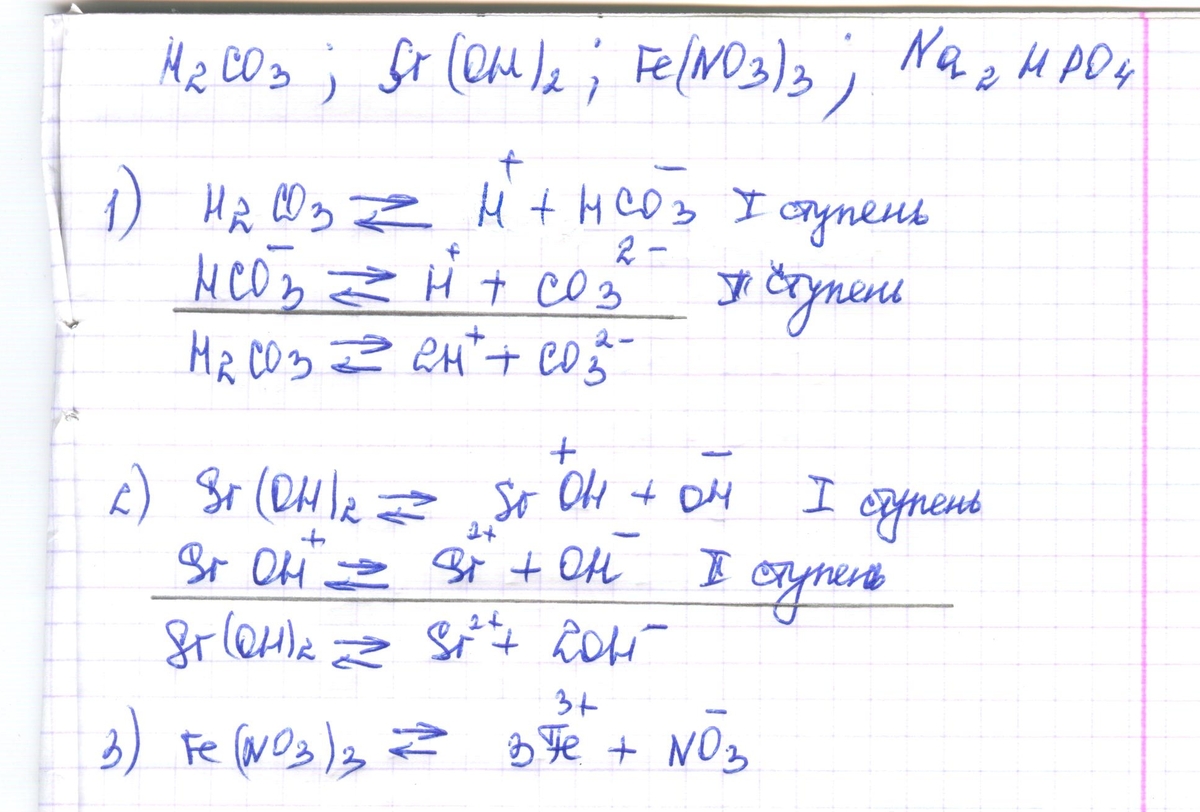 H₂CO₃; Sr(OH)₂; Fe(NO₃)₃; Na₂HPO₄
1) H₂CO₃ ⇄ H⁺ + HCO₃⁻ I ступень
HCO₃⁻ ⇄ H⁺ + CO₃²⁻ II ступень
H₂CO₃ ⇄ 2H⁺ + CO₃²⁻
2) Sr(OH)₂ ⇄ SrOH⁺ + OH⁻ I ступень
SrOH⁺ ⇄ Sr²⁺ + OH⁻ II ступень
Sr(OH)₂ ⇄ Sr²⁺ + 2OH⁻
3) Fe(NO₃)₃ ⇄ 3Fe³⁺ + NO₃⁻